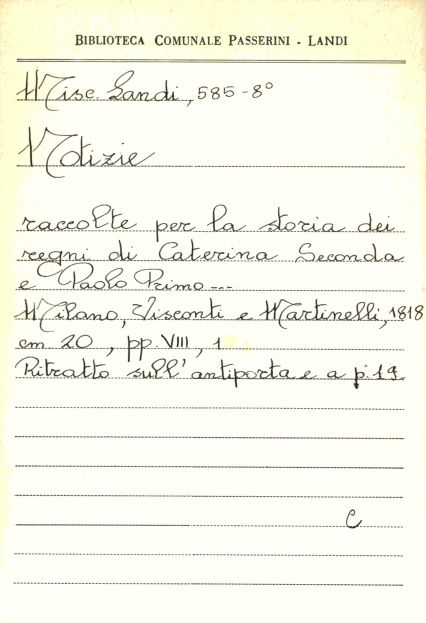 BIBLIOTECA COMUNALE PASSERINI - LANDI
Misc. Landi, 585-8°
Notizie
raccolte per la storia dei
regni di Caterina Seconda
e Paolo Primo---
Milano, Visconti e Martinelli, 1818
cm 20, pp. VIII, 1
Ritratto sull'antiporta e a p. 19.
C